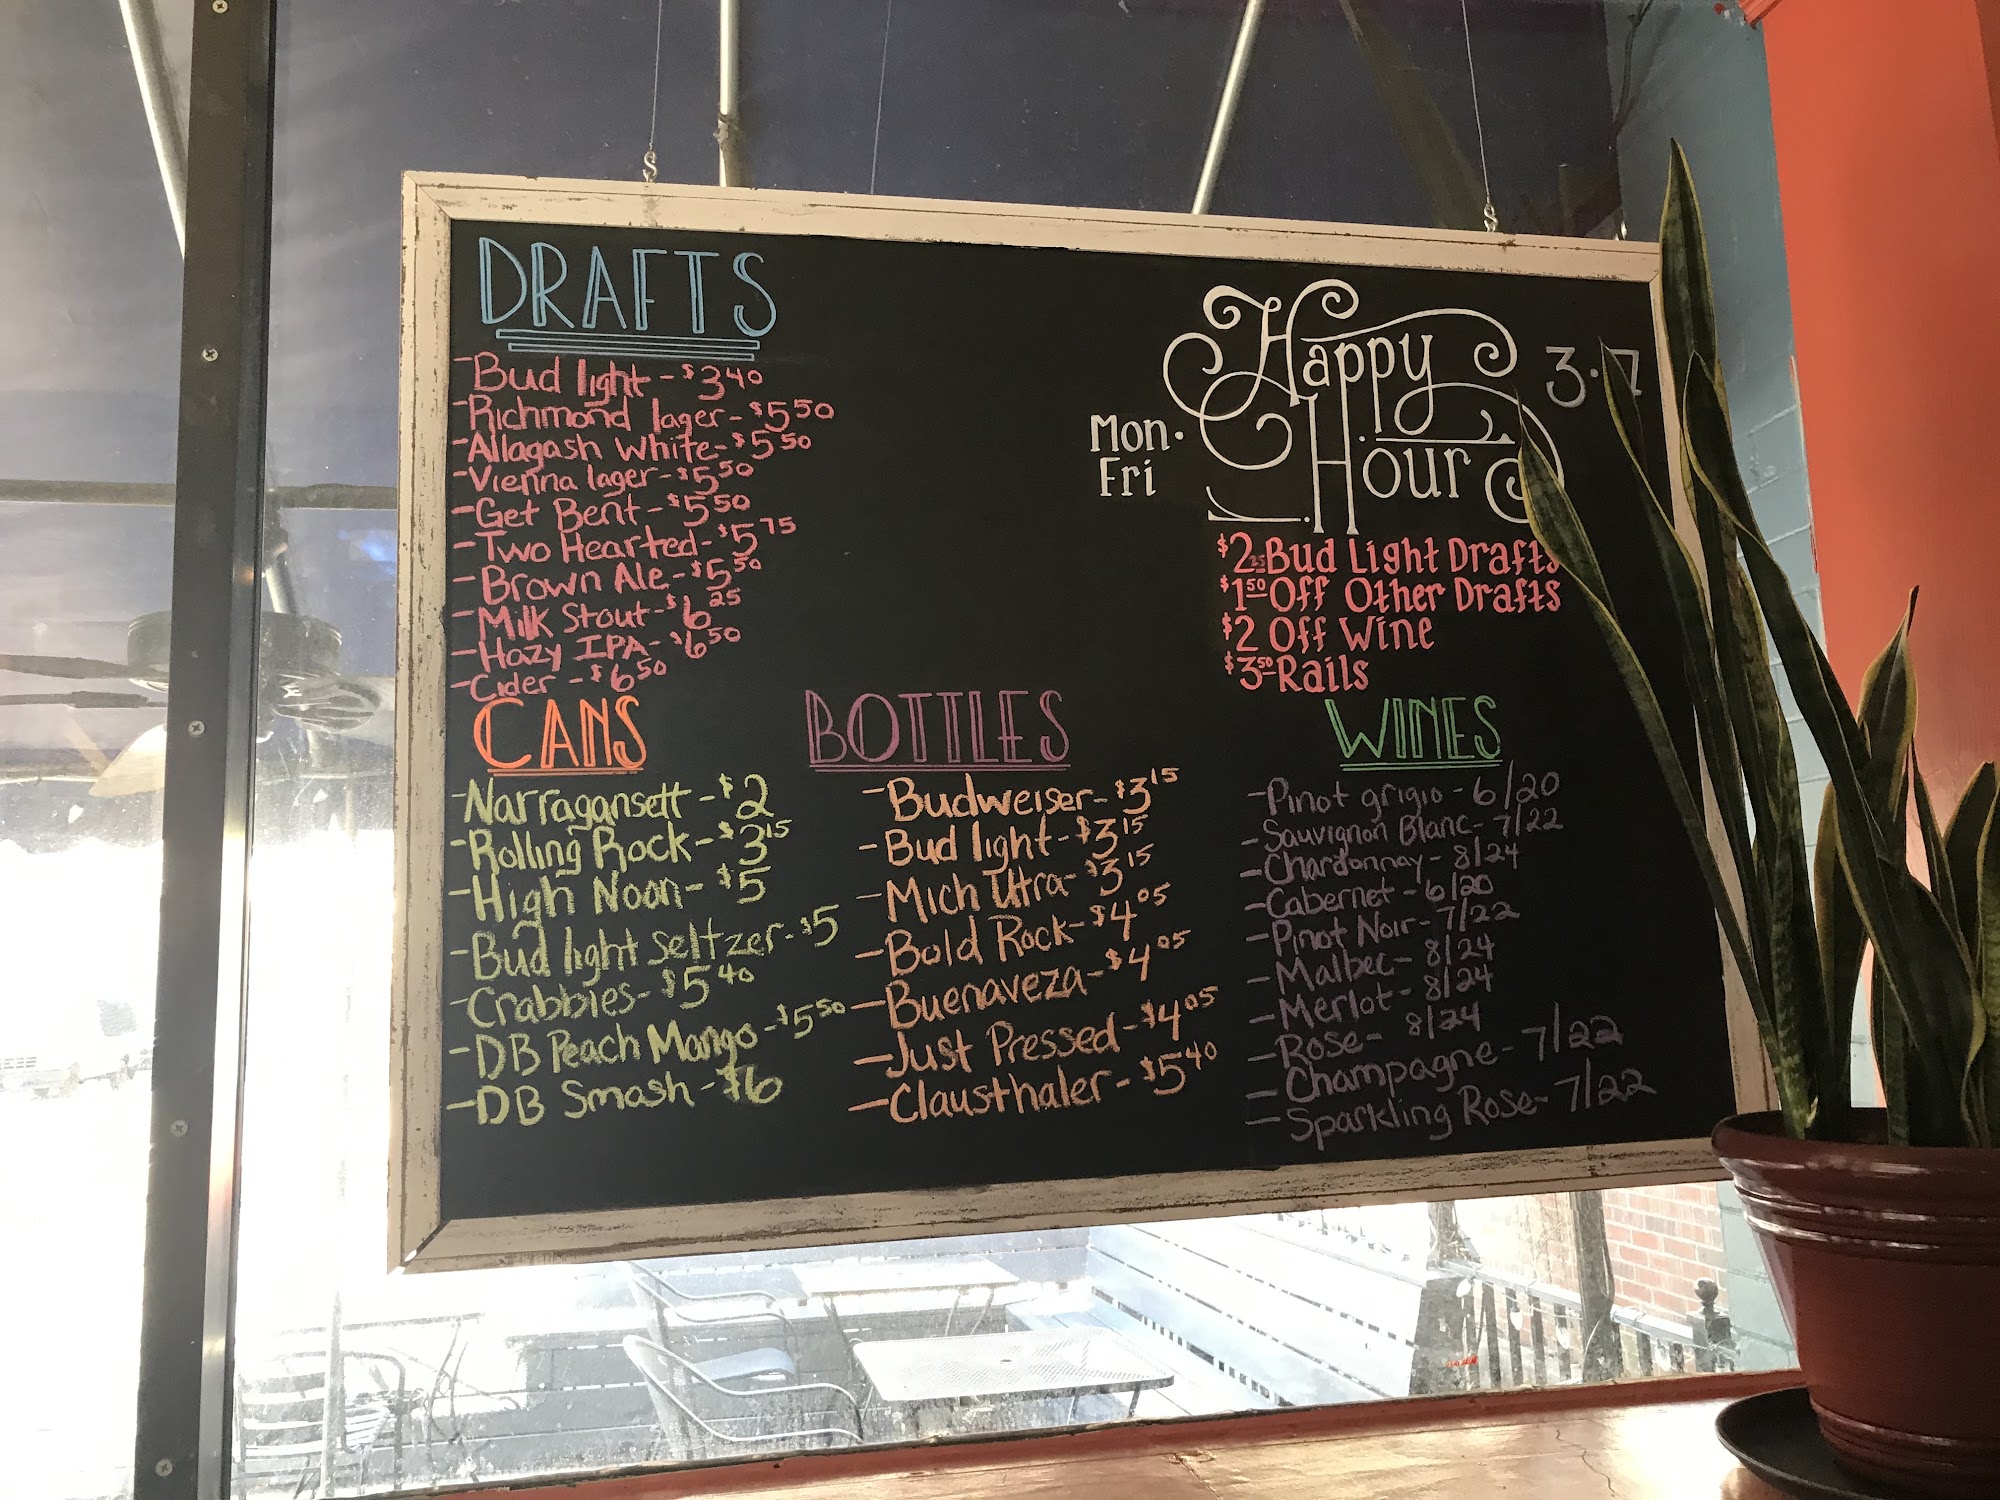 DRAFTS
- Bud light - $3 40
- Richmond lager - $5 50
- Allagash White - $5 50
- Vienna lager - $5 50
- Get Bent - $5 50
- Two Hearted - $5 75
- Brown Ale - $5 50
- Milk Stout - $6 25
- Hazy IPA - $6 50
- Cider - $6 50
Mon - Fri
Happy Hour
3-7
$2 25 Bud Light Drafts
$1 50 Off Other Drafts
$2 Off Wine
$3 50 Rails
CANS
- Narragansett - $2
- Rolling Rock - $3 15
- High Noon - $5
- Bud light Seltzer - $5
- Crabbies - $5 40
- DB Peach Mango - $5 50
- DB Smash - $6
BOTTLES
- Budweiser - $3 15
- Bud light - $3 15
- Mich Ultra - $3 15
- Bold Rock - $4 05
- Buenaveza - $4 05
- Just Pressed - $4 05
- Clausthaler - $5 40
WINES
- Pinot grigio - 6/20
- Sauvignon Blanc - 7/22
- Chardonnay - 8/24
- Cabernet - 6/20
- Pinot Noir - 7/22
- Malbec - 8/24
- Merlot - 8/24
- Rose - 8/24
- Champagne - 7/22
- Sparkling Rose - 7/22